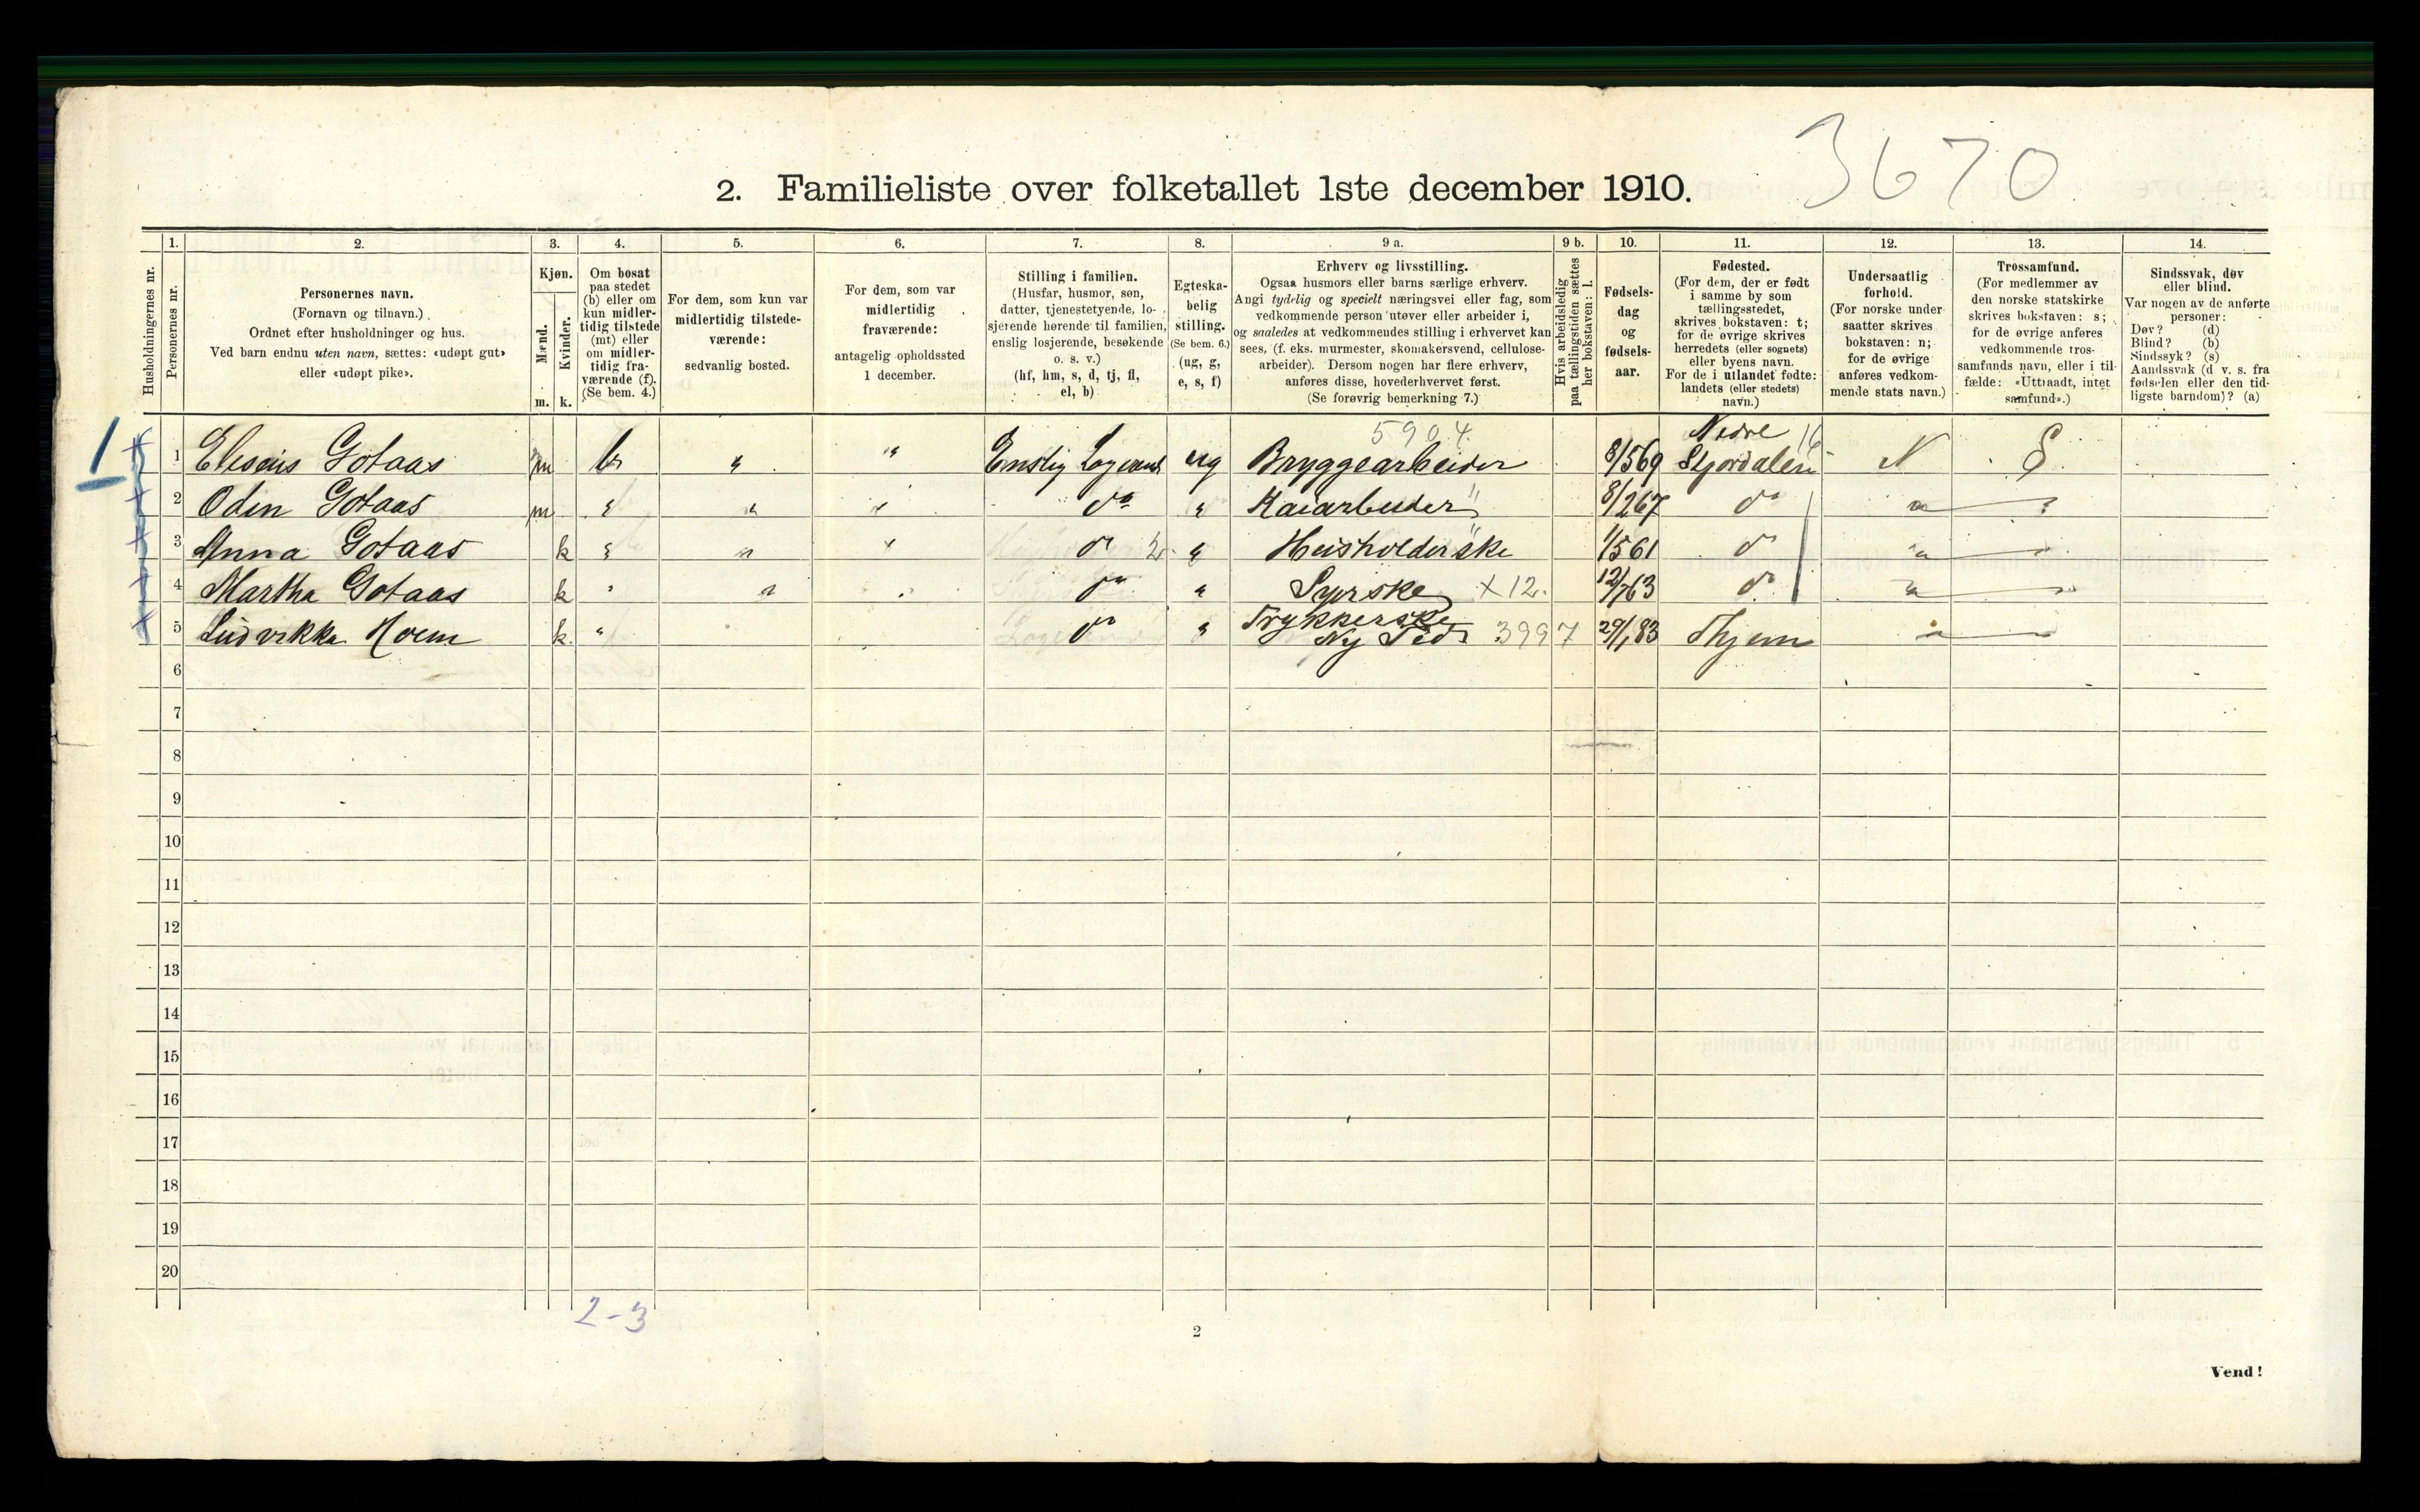 3670
2. Familieliste over folketallet 1ste december 1910.
Husholdningernes nr.
1.
Personernes nr.
2.
Personernes navn.
(Fornavn og tilnavn.)
Ordnet efter husholdninger og hus.
Ved barn endnu uten navn, sættes: «udøpt gut»
eller «udøpt pike».
3.
Kjøn.
Mænd.
Kvinder.
m. k.
4.
Om bosat
paa stedet
(b) eller om
kun midler-
tidig tilstede
(mt) eller
om midler-
tidig fra-
værende (f).
(Se bem. 4.)
5.
For dem, som kun var
midlertidig tilstede-
værende:
sedvanlig bosted.
6.
For dem, som var
midlertidig
fraværende:
antagelig opholdssted
1 december.
7.
Stilling i familien.
(Husfar, husmor, søn,
datter, tjenestetyende, lo-
sjerende hørende til familien,
enslig losjerende, besøkende
o. s. v.)
(hf, hm, s, d, tj, fl,
el, b)
8.
Egteska-
belig
stilling.
(Se bem. 6.)
(ug, g,
e, s, f)
9 a.
Erhverv og livsstilling.
Ogsaa husmors eller barns særlige erhverv.
Angi tydelig og specielt næringsvei eller fag, som
vedkommende person utøver eller arbeider i,
og saaledes at vedkommendes stilling i erhvervet kan
sees, (f. eks. murmester, skomakersvend, cellulose-
arbeider). Dersom nogen har flere erhverv,
anføres disse, hovederhvervet først.
(Se forøvrig bemerkning 7.)
9 b.
Hvis arbeidsledig
paa tællingstiden sættes
her bokstaven: l.
10.
Fødsels-
dag
og
fødsels-
aar.
11.
Fødested.
(For dem, der er født
i samme by som
tællingsstedet,
skrives bokstaven: t;
for de øvrige skrives
herredets (eller sognets)
eller byens navn.
For de i utlandet fødte:
landets (eller stedets)
navn.)
12.
Undersaatlig
forhold.
(For norske under
saatter skrives
bokstaven: n;
for de øvrige
anføres vedkom-
mende stats navn.)
13.
Trossamfund.
(For medlemmer av
den norske statskirke
skrives bokstaven: s;
for de øvrige anføres
vedkommende tros-
samfunds navn, eller i til-
fælde: «Uttraadt, intet
samfund».)
14.
Sindssvak, døv
eller blind.
Var nogen av de anførte
personer:
Døv? (d)
Blind? (b)
Sindssyk? (s)
Aandssvak (d v. s. fra
fødselen eller den tid-
ligste barndom)? (a)
5904 Nedre 16
1 1 Eliseus Gotaas m b " " Enslig Logerend ug Bryggearbeider 8/5 69 Stjørdalen N S
2 Odin Gotaas m " " " do " Kaiarbeider 8/2 67 do "
3 Anna Gotaas k " " " do " Husholderske 1/5 61 do "
4 Martha Gotaas k " " " do " Syerske X 12. 12/7 63 do "
5 Ludvikka Moem k " do " Trykkerske
Ny Tid 3997 29/1 83 Thjem "
6
7
8
9
10
11
12
13
14
15
16
17
18
19
20
2-3
2
Vend!